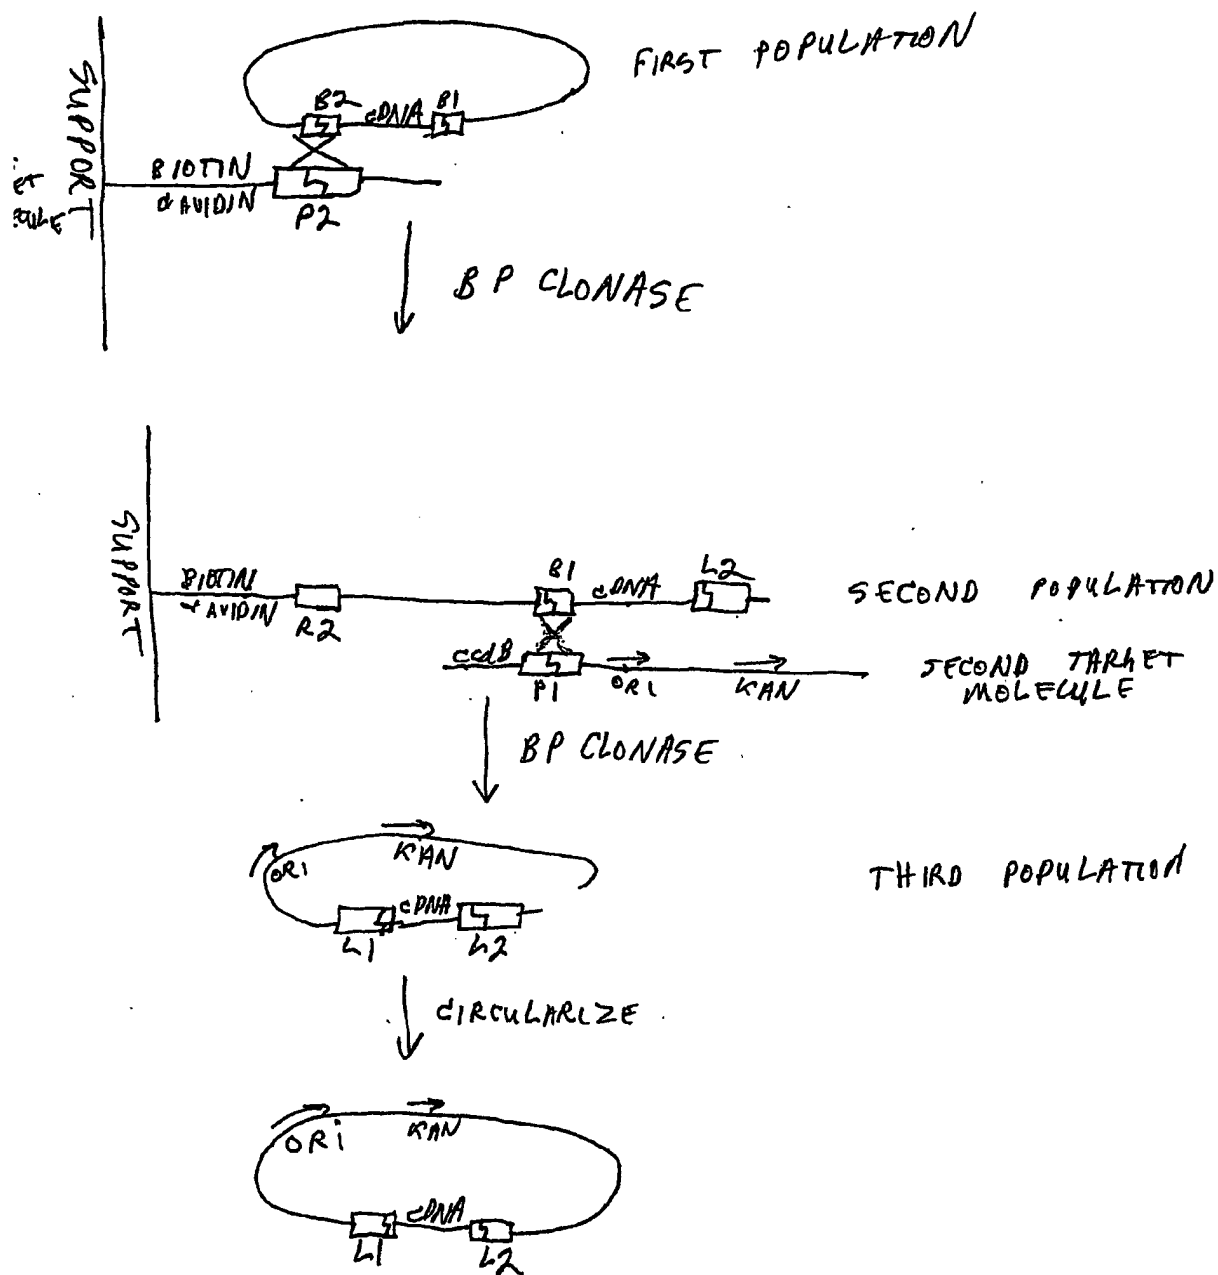 FIRST POPULATION
B2
cDNA
B1
SUPPORT
BIOTIN
& AVIDIN
P2
BP CLONASE
SUPPORT
BIOTIN
& AVIDIN
R2
B1
cDNA
L2
SECOND POPULATION
ccdB
P1
ORI
KAN
SECOND TARGET
MOLECULE
BP CLONASE
ORI
KAN
THIRD POPULATION
L1
cDNA
L2
CIRCULARIZE
ORI
KAN
L1
cDNA
L2